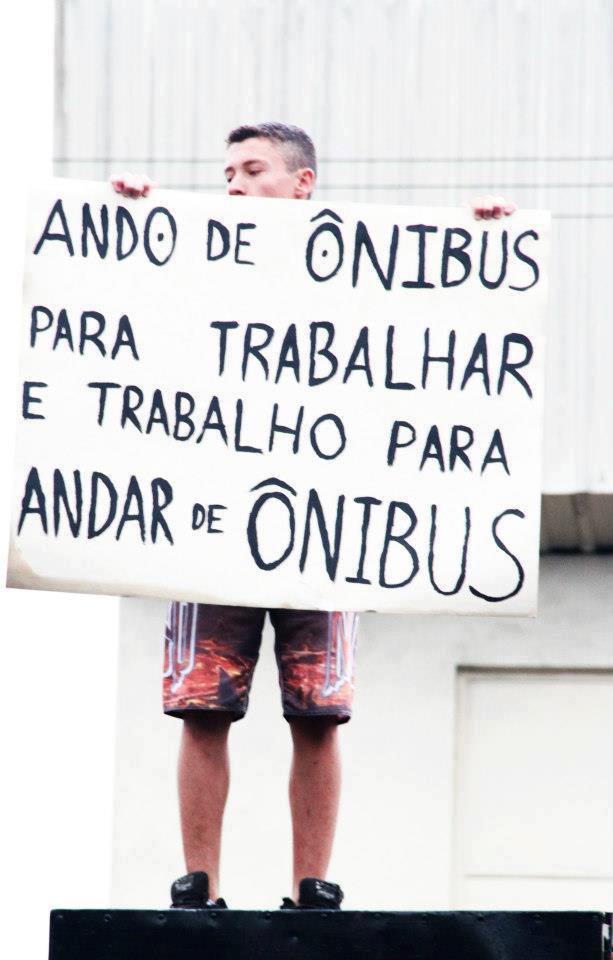 ANDO DE ÔNIBUS
PARA TRABALHAR
E TRABALHO PARA
ANDAR DE ÔNIBUS